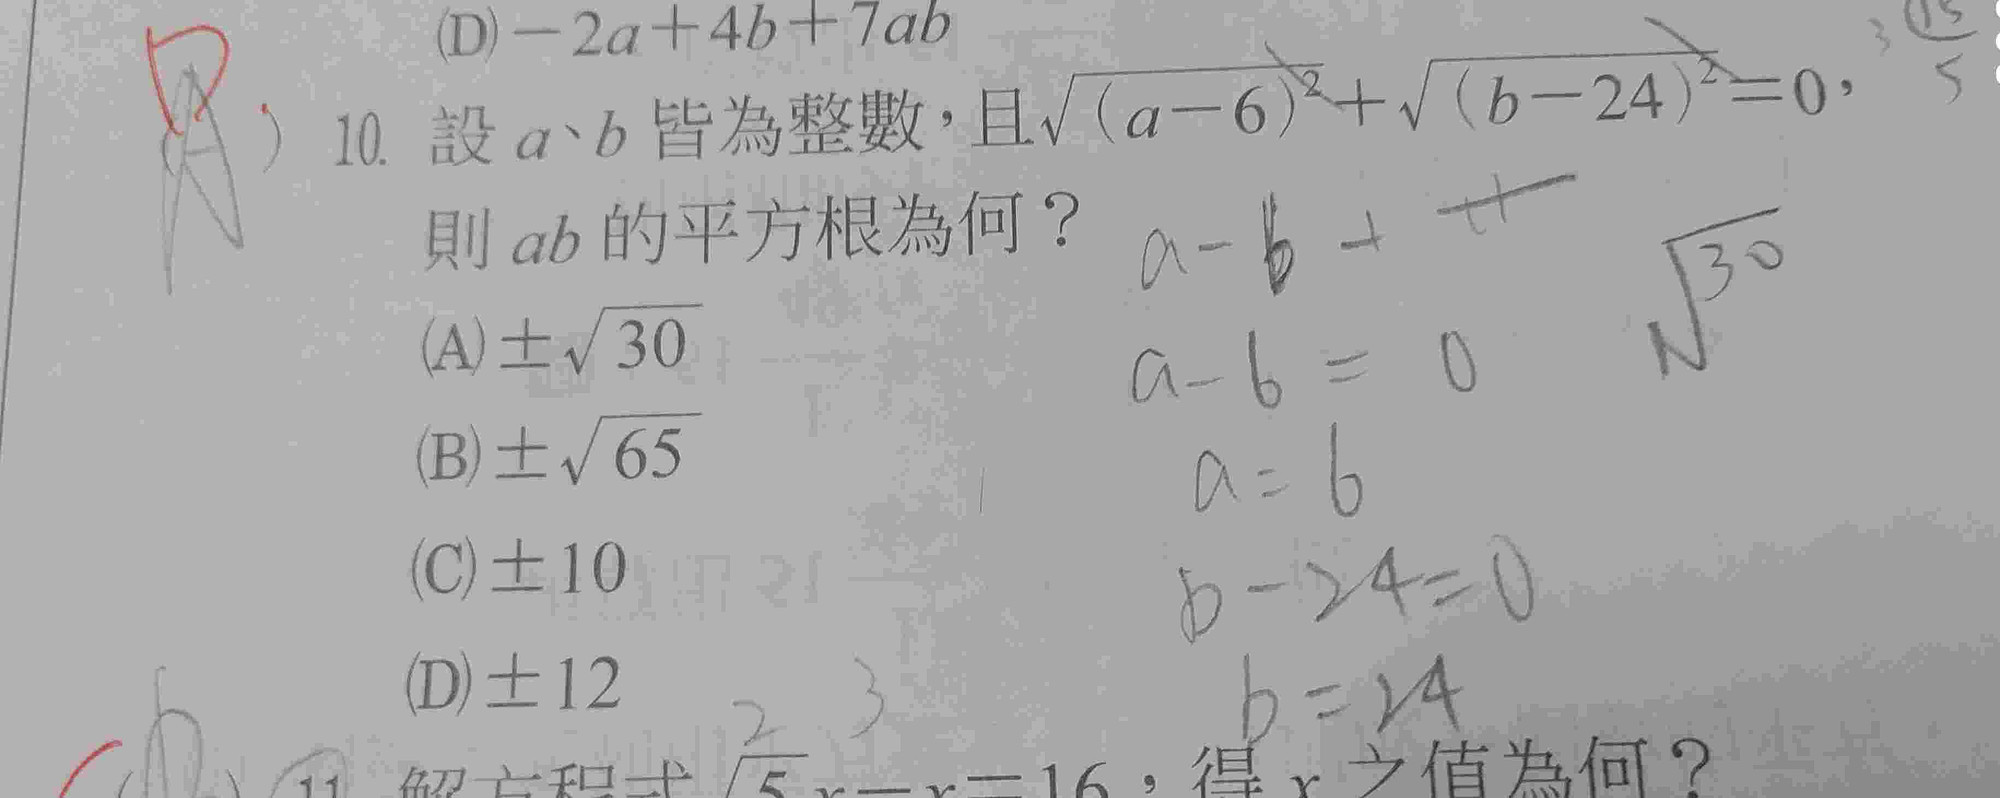 (D)－2a＋4b＋7ab
10. 設 a、b 皆為整數，且√(a－6)²＋√(b－24)²＝0，
則 ab 的平方根為何？
(A)±√30
(B)±√65
(C)±10
(D)±12
a-6+
a-6=0
a=6
b-24=0
b=24
√30
3 15
5
2 3
11. 解方程式 √5x－x＝16，得 x 之值為何？